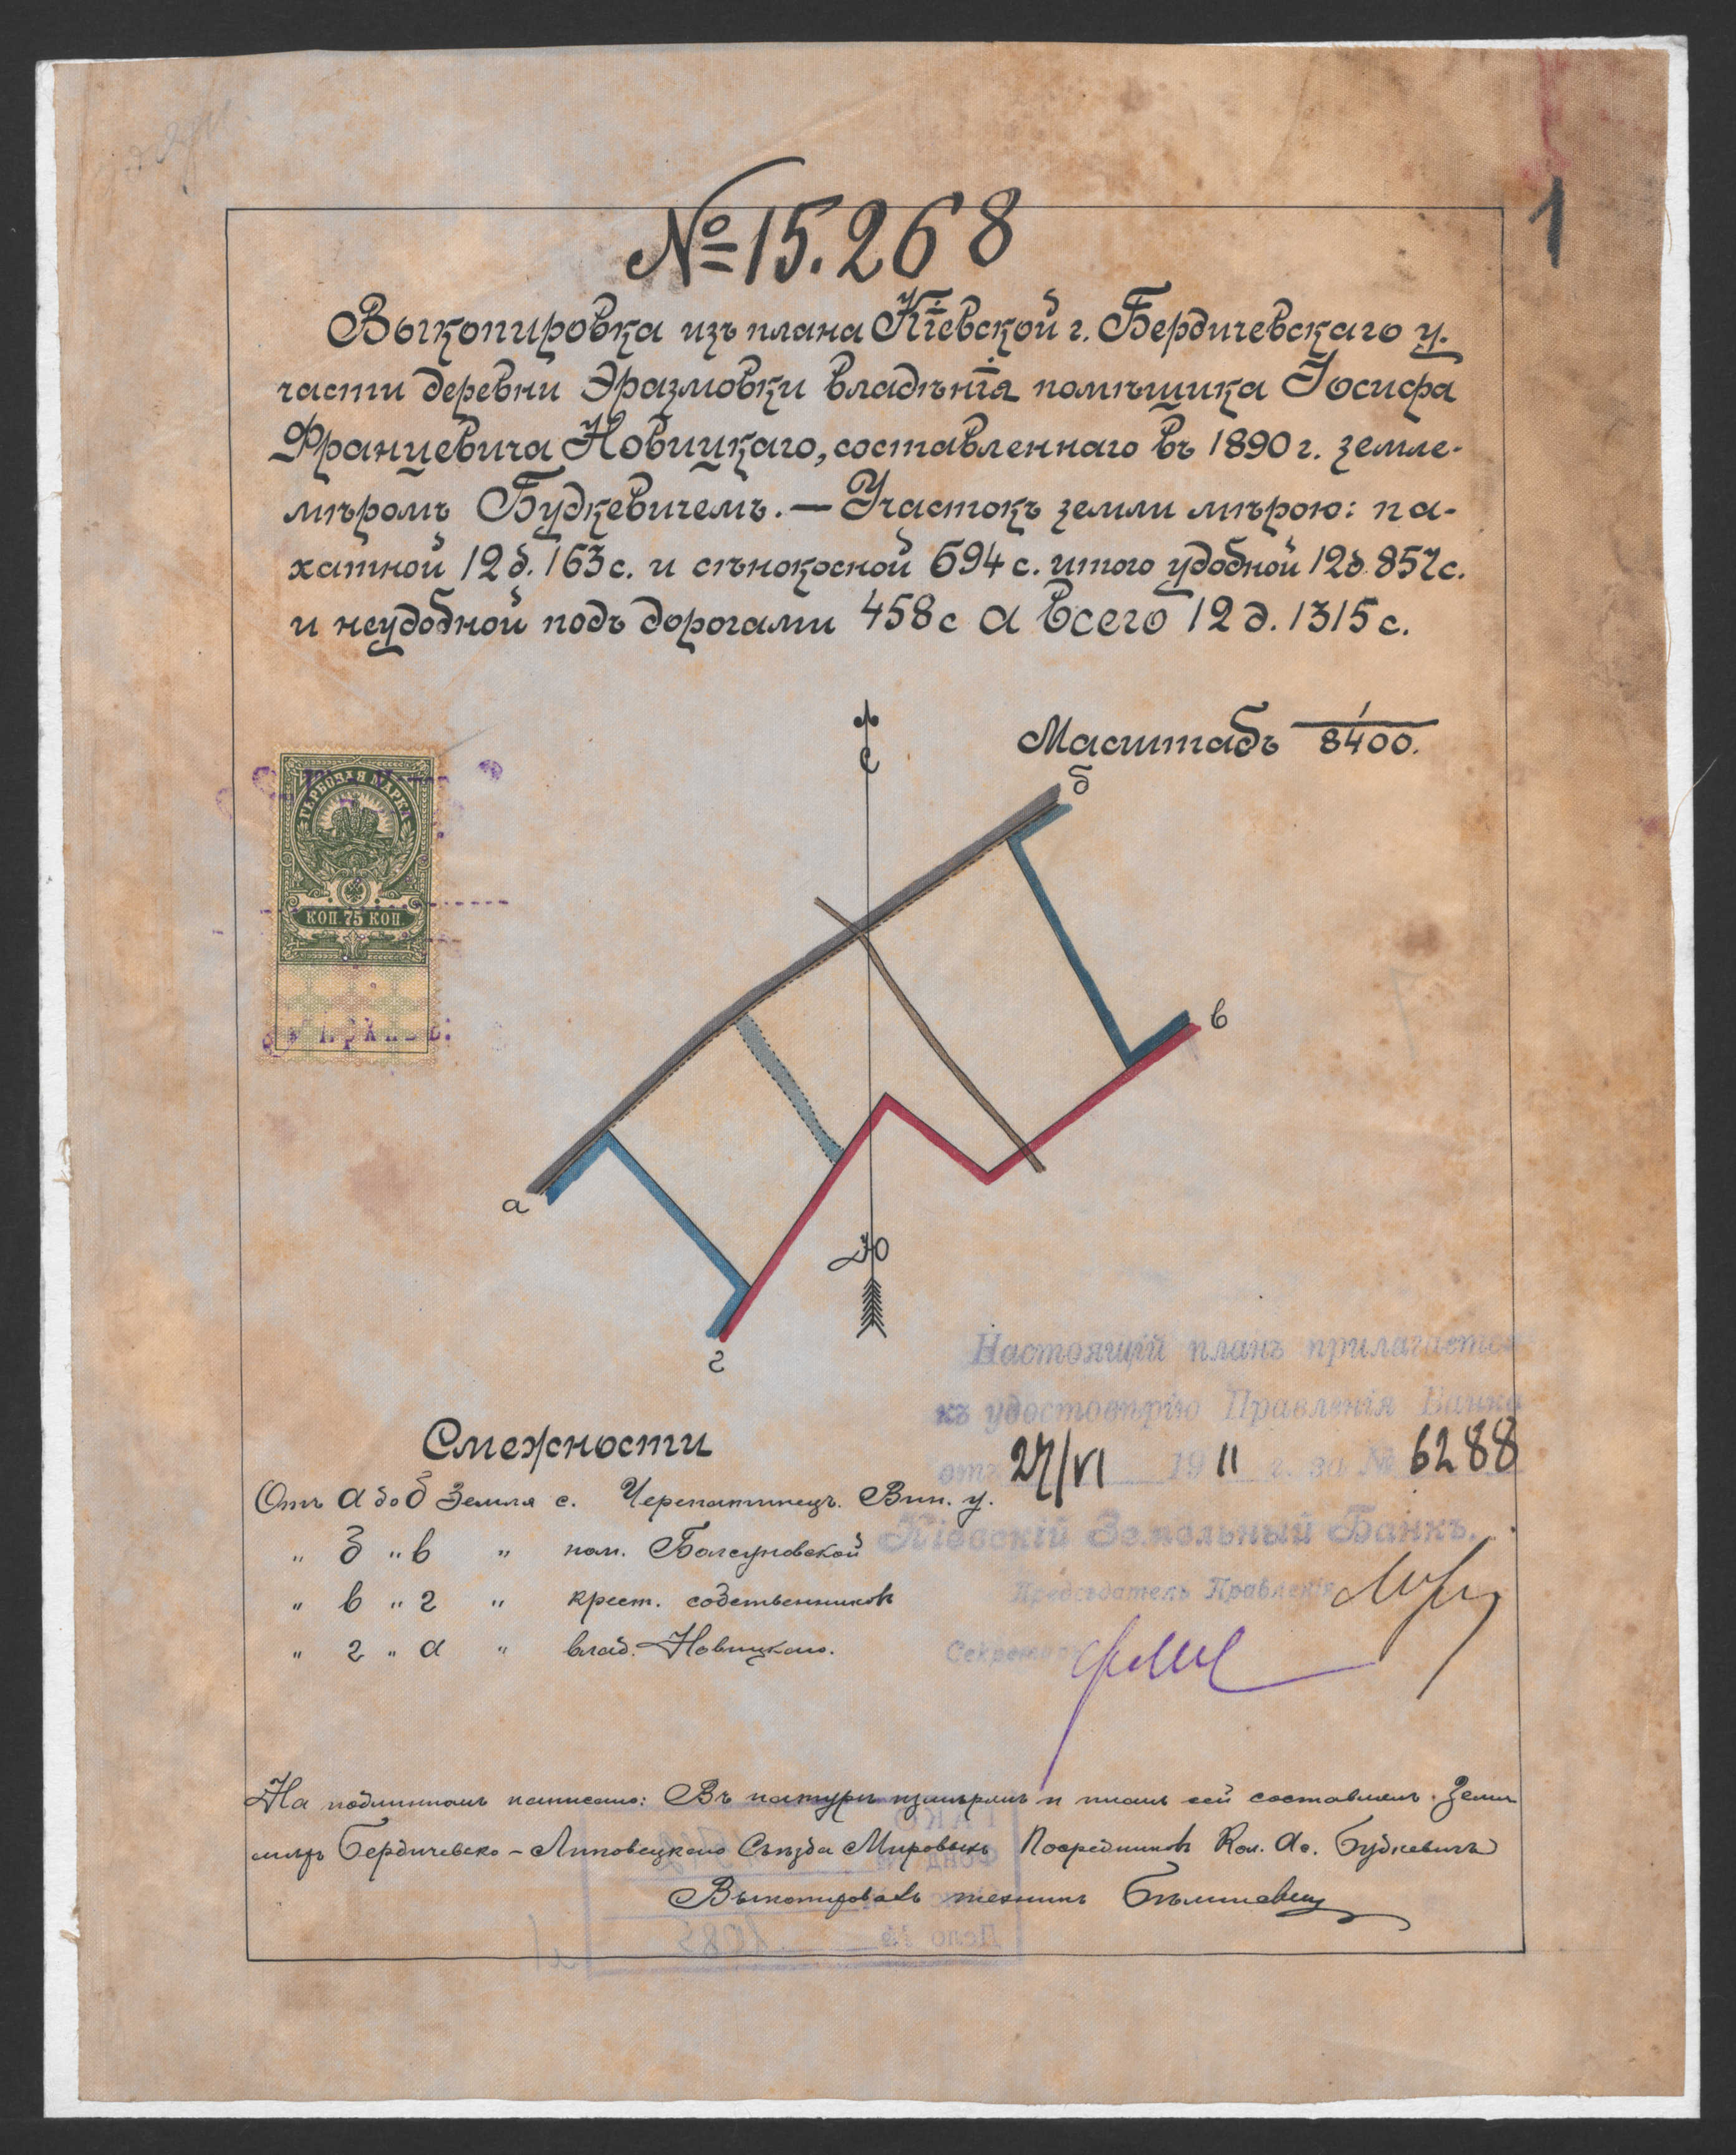 1
№ 15.268
Выкопировка изъ плана Кіевской г. Бердичевскаго у.
части деревни Эразмовки владѣнія помѣщика Іосифа
Францевича Новицкаго, составленнаго въ 1890 г. земле-
мѣромъ Будкевичемъ. — Участокъ земли мѣрою: па-
хатной 12 д. 163 с. и сѣнокосной 694 с. итого удобной 12 д. 857 с.
и неудобной подъ дорогами 458 с а всего 12 д. 1315 с.
Масштабъ 1/8400.
ГЕРБОВАЯ МАРКА
КОП. 75 КОП.
С
б
в
а
Ю
г
Настоящій планъ прилагается
къ удостовѣрію Правленія Банка
отъ 27/VI 1911 г. за № 6288
Кіевскій Земельный Банкъ.
Предсѣдатель Правленія
Секретарь
Смежности
Отъ а до б Земля с. Черепашинецъ. Вин. у.
„ б „ в „ пом. Болсуновской
„ в „ г „ крест. собственниковъ
„ г „ а „ влад. Новицкаго.
На подлинномъ написано: Въ натурѣ измѣрялъ и планъ сей составлялъ. Земле
мѣръ Бердичевско-Липовецкаго Съѣзда Мировыхъ Посредниковъ Кол. Ас. Будкевичъ
Выкопировалъ техникъ
ГАКО
Фонд №
Дело № 1085